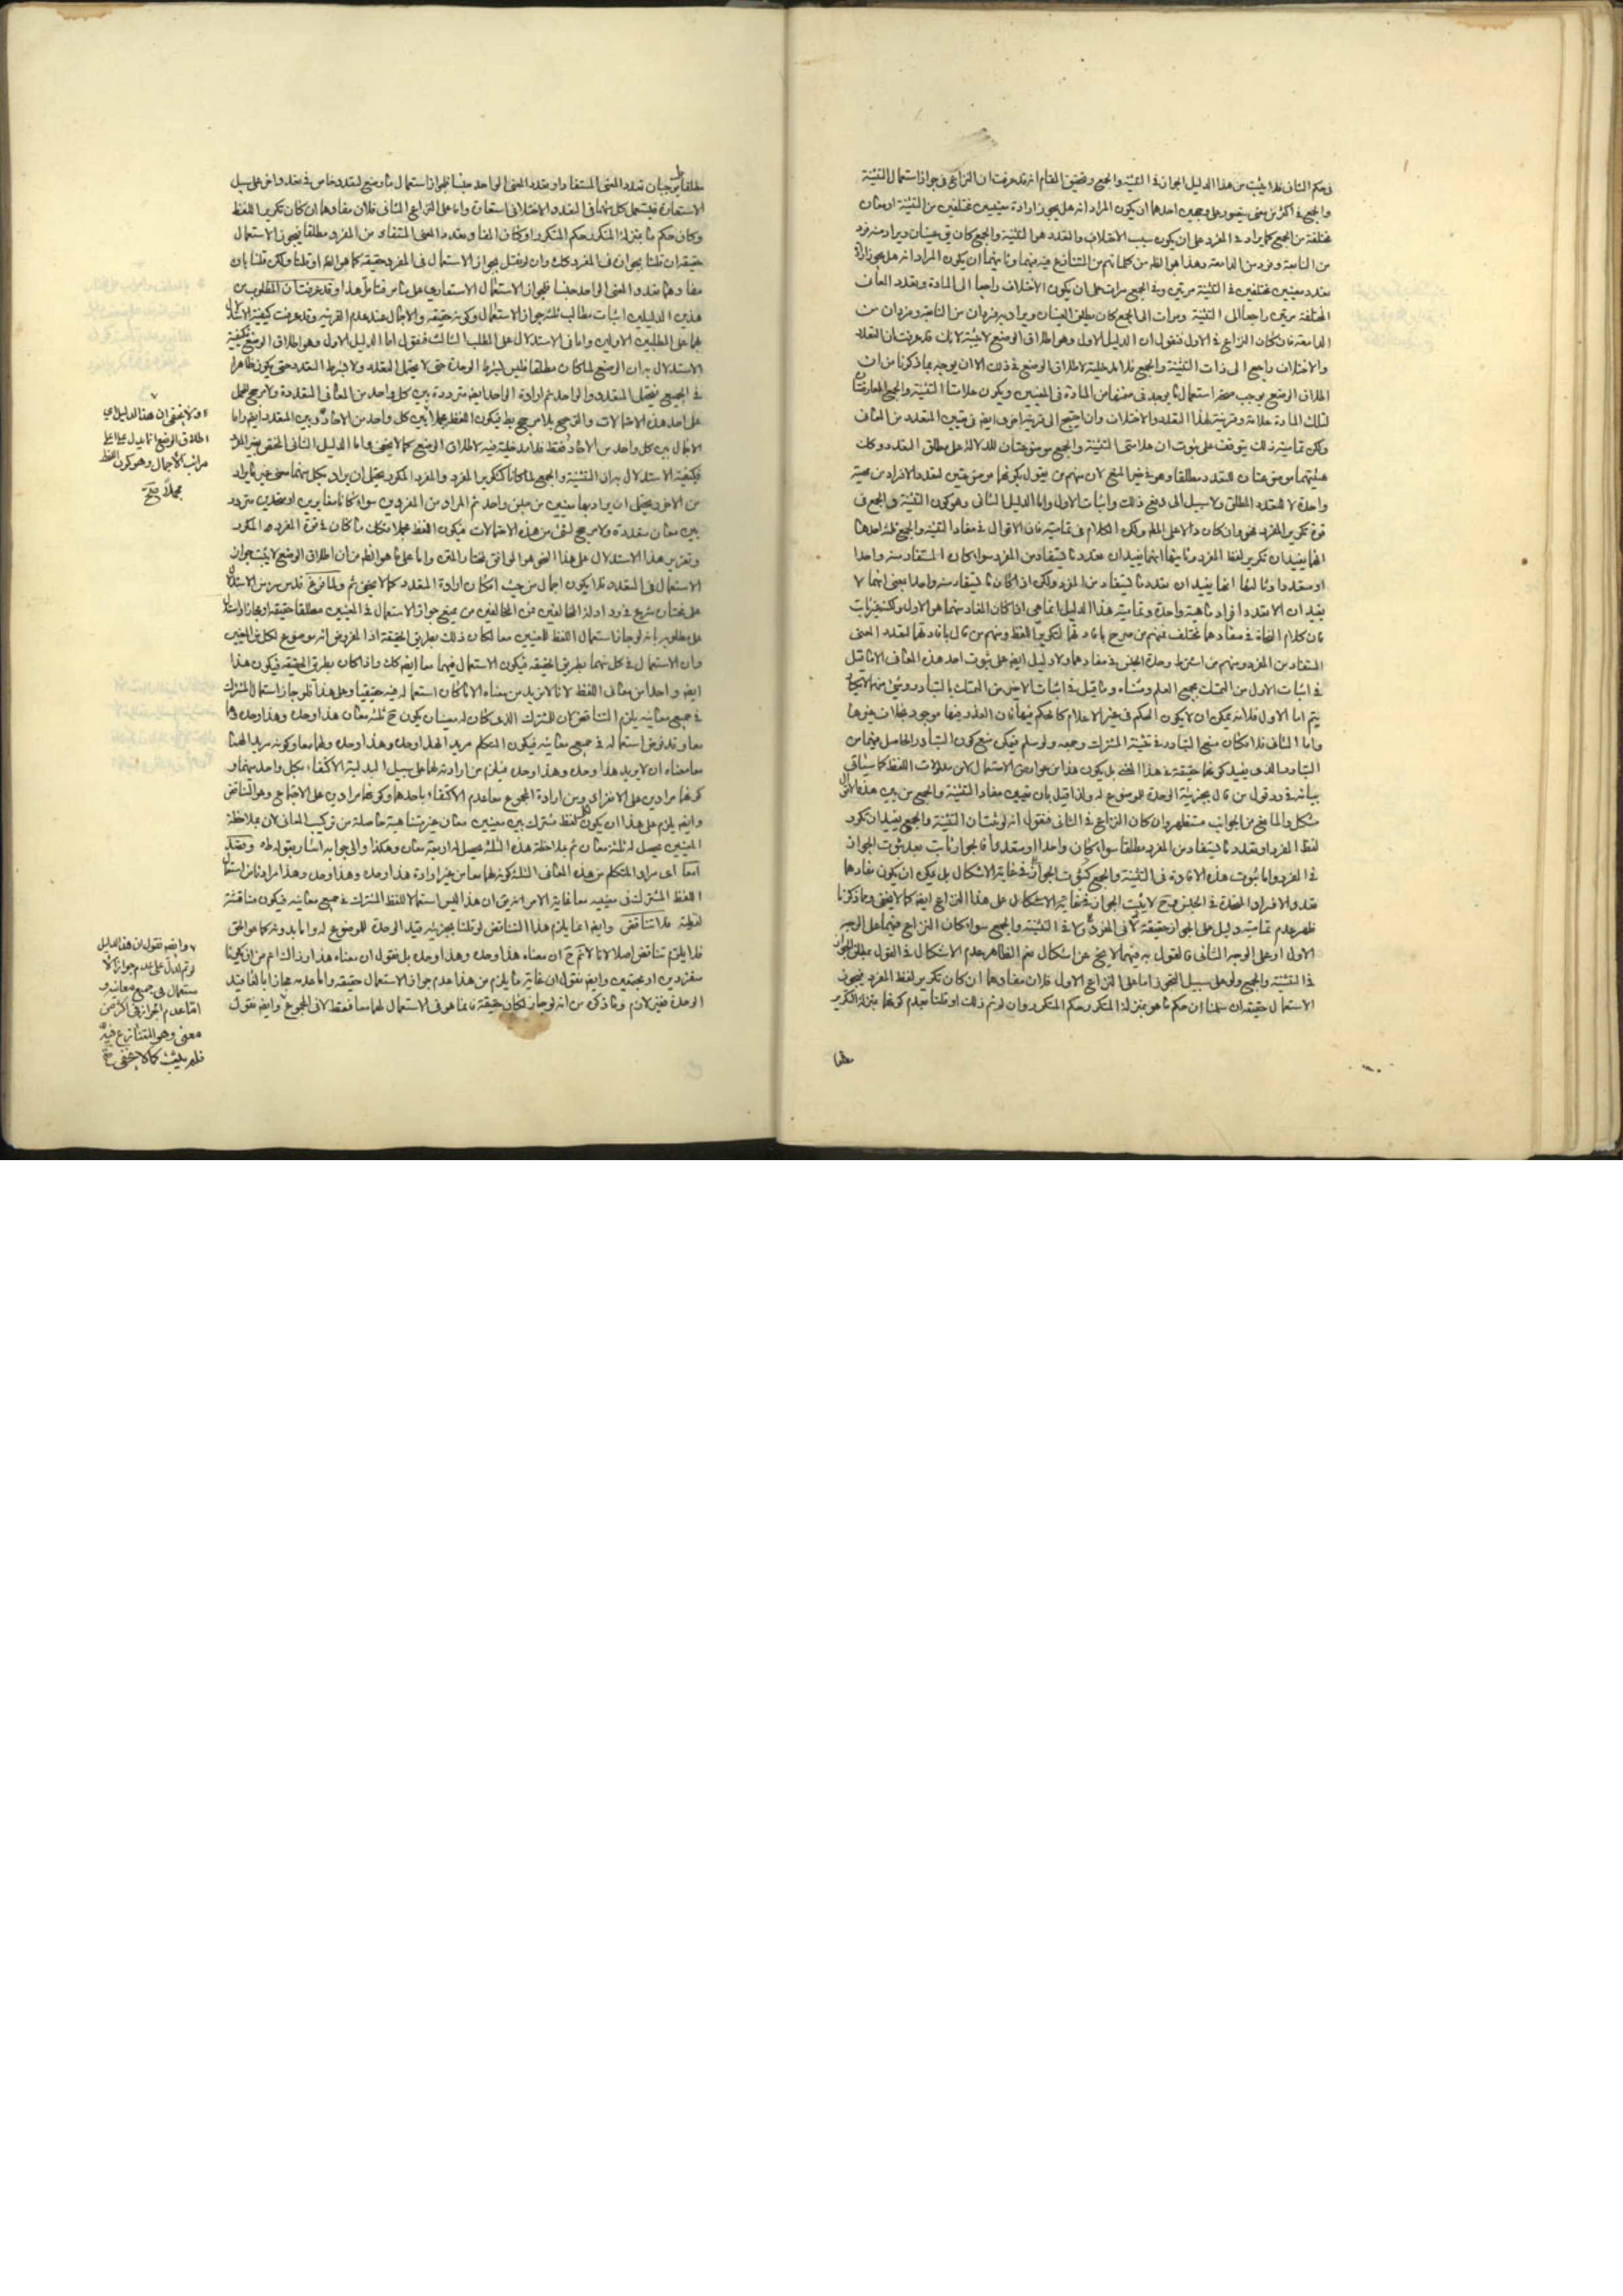 في حكم الثاني فلا يثبت من هذا الدليل الجواز في التثنية والجمع وتحقيق المقام انه قد عرفت ان النزاع في جواز استعمال التثنية
والجمع في اكثر من معنى يتصور على وجهين احدهما ان يكون المراد انه هل يجوز ارادة معنيين مختلفين من التثنية او معان
مختلفة من الجمع كما يراد في المفرد على ان يكون سبب الاختلاف والتعدد هو التثنية والجمع كان عينان ويراد منه فرد
من النابعة وفرد من الدامعة وهذا هو الظ من كلماتهم من المتنازع فيه فيهما وثانيهما ان يكون المراد انه هل يجوز ارادة
تعدد معنيين مختلفين في التثنية مرتين وفي الجمع مرات على ان يكون الاختلاف راجعا الى المادة وتعدد المعاني
المختلفة مرتين راجعا الى التثنية ومرات الى الجمع كان يطلق العينان ويراد به فردان من النابعة وفردان من
الدامعة فان كان النزاع في الاول فنقول ان الدليل الاول وهو اطلاق الوضع لا يثبته لانك قد عرفت ان التعدد
والاختلاف راجع الى ذات التثنية والجمع فلا مدخلية لاطلاق الوضع في ذلك الا ان يوجه بما ذكرنا من ان
اطلاق الوضع يوجب صحة استعمال ما يوجد في ضمنها من المادة في المعنيين ويكون علامتا التثنية والجمع العارضتان
لتلك المادة علامة وقرينة لهذا التعدد والاختلاف وان احتيج الى قرينة اخرى ايض في تعيين المتعدد من المعاني
ولكن تمامية ذلك يتوقف على ثبوت ان علامتي التثنية والجمع موضوعتان للدلالة على مطلق التعدد وكانت
واحدة لا للتعدد المطلق ولا سبيل الى دفع ذلك واثبات الاول واما الدليل الثاني وهو كون التثنية والجمع في
قوة تكرير المفرد فهو وان كان دالا على المط ولكن الكلام في تماميته فان الاقوال في مفاد التثنية والجمع ثلثة احدها
انهما يفيدان تكرير لفظ المفرد وثانيها انهما يفيدان تعدد ما يستفاد من المفرد سواء كان المستفاد منه واحدا
او متعددا وثالثها انهما يفيدان تعدد ما يستفاد من المفرد ولكن اذا كان ما يستفاد منه واحدا بمعنى انهما لا
يفيدان الا تعدد افراد ماهية واحدة وتمامية هذا الدليل انما هي اذا كان المفاد منهما هو الاول
فان كلام النحاة في مفادهما مختلف فمنهم من صرح بافادتهما لتكرير اللفظ ومنهم من قال بافادتهما لتعدد المعنى
المستفاد من المفرد ومنهم من اشترط وحدة الجنس في مفادهما ولا دليل ايض على ثبوت احد هذه المعاني الا ما قيل
في اثبات الاول من التمسك بجمع العلم ومثناه وما قيل في اثبات الاخير من التمسك بالتبادر
يتم اما الاول فلانه يمكن ان لا يكون الحكم في غير الاعلام كالحكم فيها فان العذر فيها موجود بخلاف غيرها
واما الثاني فلامكان منع التبادر في تثنية المشترك وجمعه ولو سلم فيمكن منع كون التبادر الحاصل فيهما من
التبادر الذي يفيد كونها حقيقة في هذا المعنى بل يكون هذا من عوارض الاستعمال لا من مدلولات اللفظ كما سياتي
بيانه في رد قول من قال بجزئية الوحدة للموضوع له ولذا قيل بان تعيين مفاد التثنية والجمع من بين هذه الاقوال
مشكل وان كان النزاع في الثاني فنقول انه لو ثبت ان التثنية والجمع يفيدان تكرير
لفظ المفرد او تعدد ما يستفاد من المفرد مطلقا سواء كان واحدا او متعددا فالجواز ثابت بعد ثبوت الجواز
في المفرد واما ثبوت هذه الافادة في التثنية والجمع كثبوت الجواز في غاية الاشكال بل يمكن ان يكون مفادهما
تعدد الافراد المتحدة في الجنس وح لا يثبت الجواز ففي غاية الاشكال على هذا النزاع ايض كما لا يخفى ومما ذكرنا
ظهر عدم تمامية دليل على الجواز حقيقة لا في المفرد ولا في التثنية والجمع سواء كان النزاع فيهما على الوجه
الاول او على الوجه الثاني فالقول به فيهما لا يخ عن اشكال نعم الظاهر عدم الاشكال في القول بمطلق الجواز
في التثنية والجمع ولو على سبيل التجوز اما على النزاع الاول فلان مفادهما ان كان تكرير لفظ المفرد فيجوز
الاستعمال حقيقة ان سلمنا ان حكم ما هو بمنزلة المتكرر حكم المتكرر وان لم نقل ذلك او قلنا بعدم كونهما بمنزلة التكرير
مطلقا
مطلقا يوجبان تعدد المعنى المستفاد او تعدد المعنى الواحد جنسا فلجواز استعمال ما وضع لتعدد خاص في تعدد اخر على سبيل
الاستعارة فيستعمل كل منهما في التعدد والاختلاف استعارة واما على النزاع الثاني فلان مفادهما ان كان تكرير اللفظ
وكان حكم ما بمنزلة المتكرر حكم المتكرر او كان المفاد تعدد المعنى المستفاد من المفرد مطلقا فيجوز الاستعمال
حقيقة ان قلنا بجوازه في المفرد كك وان لم نقل بجواز الاستعمال في المفرد حقيقة كما هو الظ او قلنا ولكن قلنا بان
مفادهما تعدد المعنى الواحد جنسا فلجواز الاستعمال الاستعاري على ما مر فتامل هذا وقد عرفت ان المطلوب من
هذين الدليلين اثبات مطالب ثلثة جواز الاستعمال وكونه حقيقة والاجمال عند عدم القرينة وقد عرفت كيفية الاستدلال
بهما على المطلبين الاولين واما في الاستدلال على المطلب الثالث فنقول اما الدليل الاول وهو اطلاق الوضع فكيفية
الاستدلال به ان الوضع لما كان مطلقا فليس بشرط الوحدة حتى لا يحتمل التعدد ولا بشرط التعدد حتى يكون ظاهرا
في الجميع فيحتمل التعدد والواحد ثم ارادة الواحد ايض مترددة بين كل واحد من المعاني المتعددة ولا مرجح للحمل
على احد هذه الاحتمالات والترجيح بلا مرجح بط فيكون اللفظ مجملا بين كل واحد من الاحاد وبين المتعدد ايض واما
الاجمال بين كل واحد من الاحاد فقط فلا مدخلية فيه لاطلاق الوضع كما لا يخفى واما الدليل الثاني المختص بغير المفرد
فكيفية الاستدلال به ان التثنية والجمع لما كانا كتكرير المفرد والمفرد المكرر يحتمل ان يراد بكل منهما معنى غير ما يراد
من الاخر ويحتمل ان يراد بهما معنيين من جنس واحد ثم المراد من المفردين سواء كانا متغايرين او متحدين متردد
بين معان متعددة ولا مرجح لشئ من هذه الاحتمالات فيكون اللفظ مجملا فكك ما كان في قوة المفرد المكرر
وتقرير هذا الاستدلال على هذا النحو هو الموافق لمختار المتن واما على ما هو الظ من ان اطلاق الوضع لا يثبت جواز
الاستعمال في المتعدد فلا يكون اجمال من حيث امكان ارادة المتعدد كما لا يخفى ثم ولما فرغ قدس سره من الاستدلال
على مختاره شرع في رد ادلة المخالفين فمن المخالفين من يمنع جواز الاستعمال في المعنيين مطلقا حقيقة او مجازا واستدل
على مطلوبه بانه لو جاز استعمال اللفظ للمعنيين معا لكان ذلك بطريق الحقيقة اذ المفروض انه موضوع لكل من المعنيين
وان الاستعمال في كل منهما بطريق الحقيقة فيكون الاستعمال فيهما معا ايض كك واذا كان بطريق الحقيقة فيكون هذا
ايض واحدا من معاني اللفظ لانا لا نريد من معناه الا ما كان استعماله فيه حقيقيا وعلى هذا فلو جاز استعمال المشترك
في جميع معانيه يلزم التناقض لان للمشترك الذي كان له معنيان يكون ح ثلثة معان هذا وحده وهذا وحده وهما
معا وقد فرض استعماله في جميع معانيه فيكون المتكلم مريدا لهذا وحده وهذا وحده ولهما معا وكونه مريدا لهما
معا معناه ان لا يريد هذا وحده وهذا وحده فيلزم من ارادته لهما على سبيل البدلية الاكتفاء بكل واحد منهما و
كونهما مرادين على الانفراد ومن ارادة المجموع معا عدم الاكتفاء باحدهما وكونهما مرادين على الاجتماع وهو التناقض
وايض يلزم على هذا ان يكون لكل لفظ مشترك بين معنيين معان غير متناهية حاصلة من تركيب المعاني لان بملاحظة
المعنيين يحصل له ثلثة معان ثم بملاحظة هذه الثلثة يحصل له اربعة معان وهكذا والى جوابه اشار بقوله
معا اي مراد المتكلم من هذه المعاني الثلثة كونهما معا من غير ارادة هذا وحده وهذا وحده
اللفظ المشترك في معنييه معا غاية الامر انه يق ان هذا ليس استعمالا للفظ المشترك في جميع معانيه فيكون مناقشة
لفظية فلا تناقض وايض انما يلزم هذا التناقض لو قلنا بجزئية قيد الوحدة للموضوع له واما بدونه كما هو الحق
فلا يلزم تناقض اصلا لانا لانم ح ان معناه هذا وحده وهذا وحده بل نقول ان معناه هذا وذاك اعم من ان يكونا
منفردين او مجتمعين وايض نقول ان غاية ما يلزم من هذا عدم جواز الاستعمال حقيقة واما عدمه مجازا بالغاء قيد
الوحدة فغير لازم وما ذكره من انه لو جاز لكان حقيقة فانما هو في الاستعمال لهما معا فقط لا في المجموع وايض نقول
ولا يخفى ان هذا الدليل اي
اطلاق الوضع انما يدل على اعلى
مراتب الاجمال وهو كون اللفظ
مجملا منه
وايض نقول ان هذا الدليل
لو تم لدل على عدم جواز الا
ستعمال في جميع معانيه و
اما عدم الجواز في اكثر من
معنى وهو المتنازع فيه
فلم يثبت كما لا يخفى منه